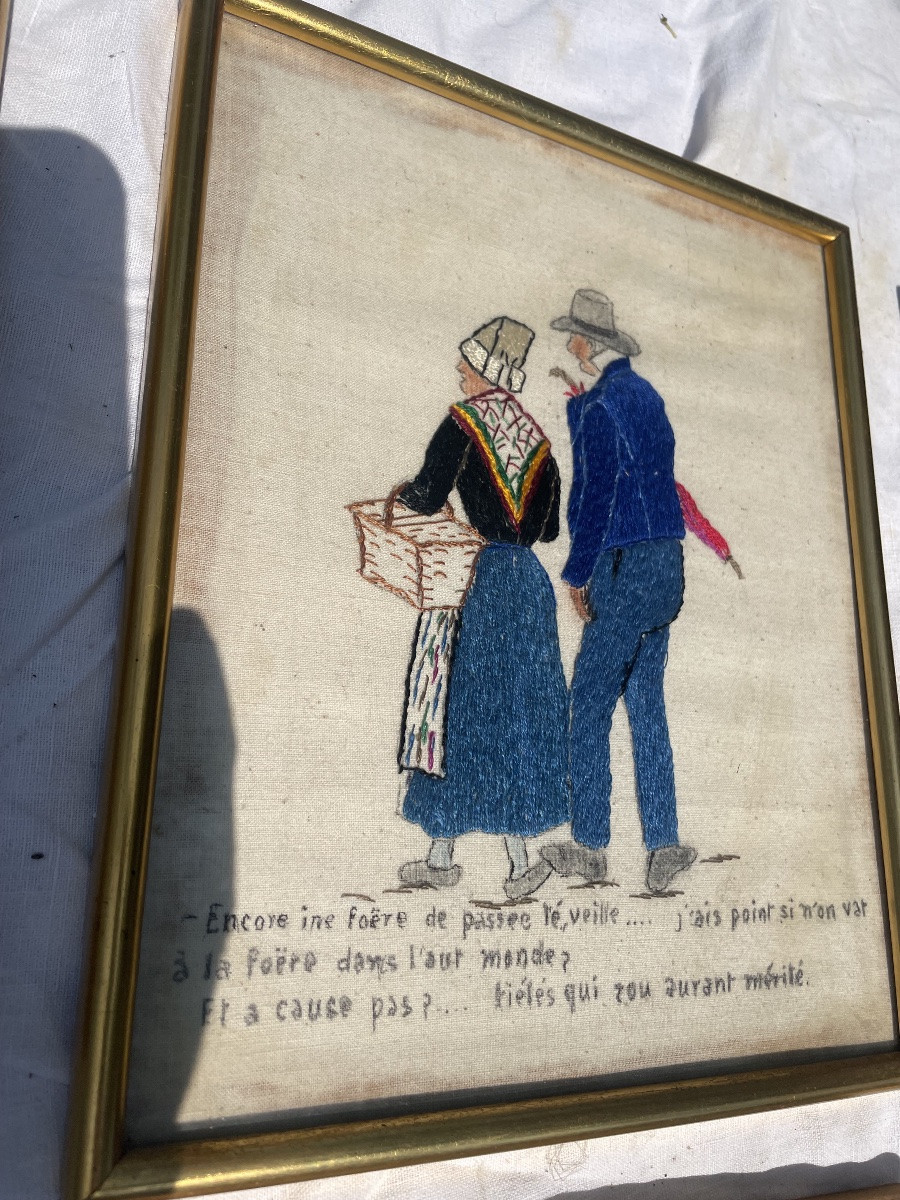 - Encore ine foëre de passee té, veille .... j'ais point si n'on vat
à la foëre dans l'aut monde?
Et a cause pas?.... tiélés qui zou aurant mérité.